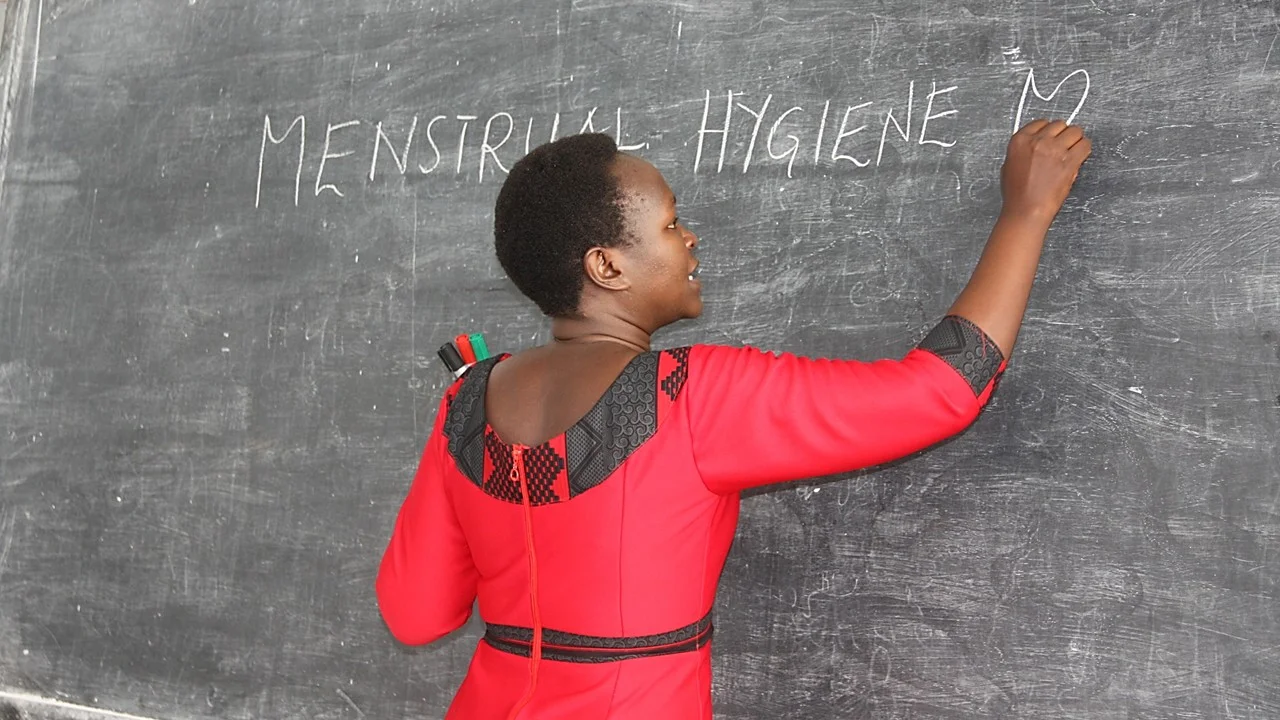 MENSTRUAL HYGIENE M